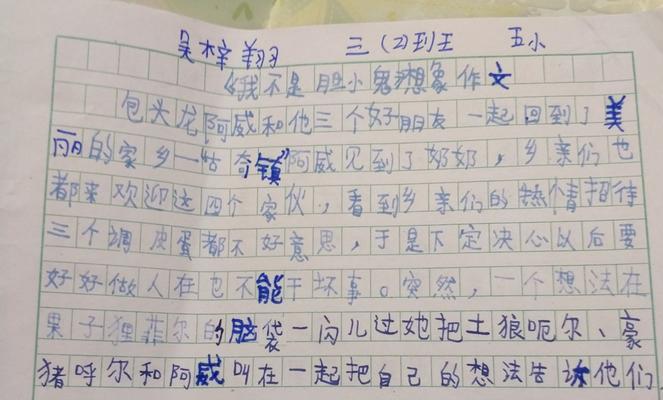 吴梓翔 三(2)班 五小
《我不是胆小鬼》想象作文
包头龙阿威和他三个好朋友一起回到了美
丽的家乡一咕奇镇”阿威见到了奶奶,乡亲们也
都来欢迎这四个家伙,看到乡亲们的热情招待
三个调皮蛋都不好意思,于是下定决心以后要
好好做人在也不能干坏事。突然,一个想法在
果子狸菲尔的脑袋一闪儿过她把土狼呃尔、豪
猪呼尔和阿威叫在一起把自己的想法告诉他们